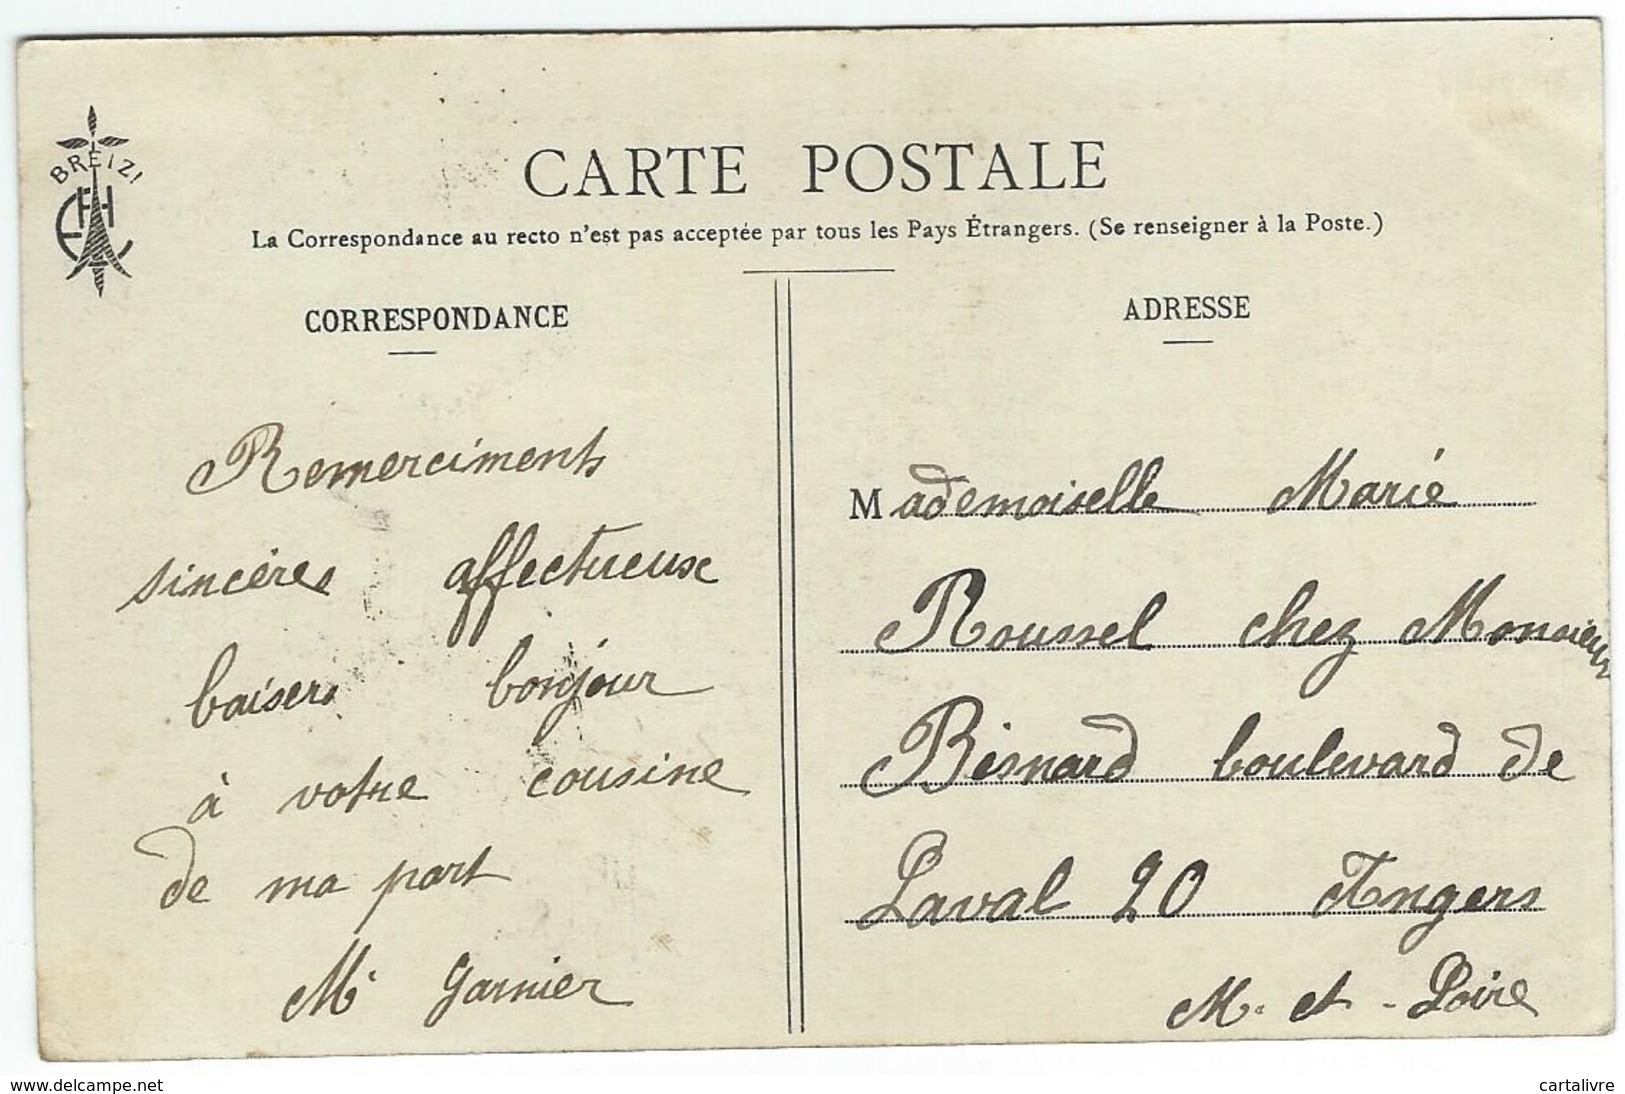 BREIZ!
CARTE POSTALE
La Correspondance au recto n'est pas acceptée par tous les Pays Étrangers. (Se renseigner à la Poste.)
CORRESPONDANCE
Remerciments
sincères affectueux
baisers bonjour
à votre cousine
de ma part
M. Garnier
ADRESSE
Mademoiselle Marie
Roussel chez Monsieur
Besnard boulevard de
Laval 20 Angers
M. et - Loire
www.delcampe.net
cartalivre